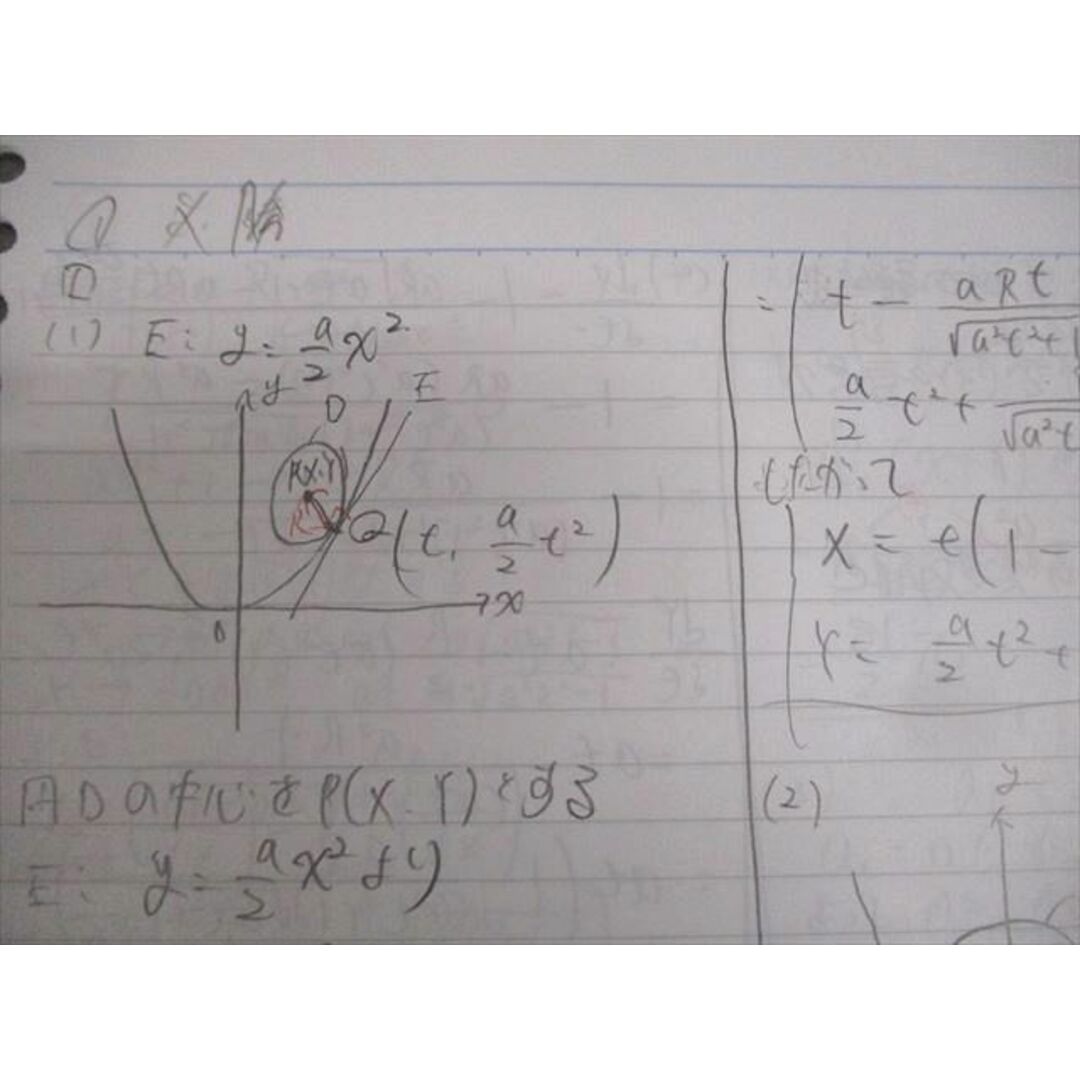 (1) E: y = a/2 x²
y
D
E
R
Q(t, a/2 t²)
x
0
円Dの中心をP(X.Y)とする
E: y = a/2 x² より
= ( t - aRt/√(a²t²+1
a/2 t² + /√(a²t
したがって
X = t(1 -
Y = a/2 t² +
(2)
y